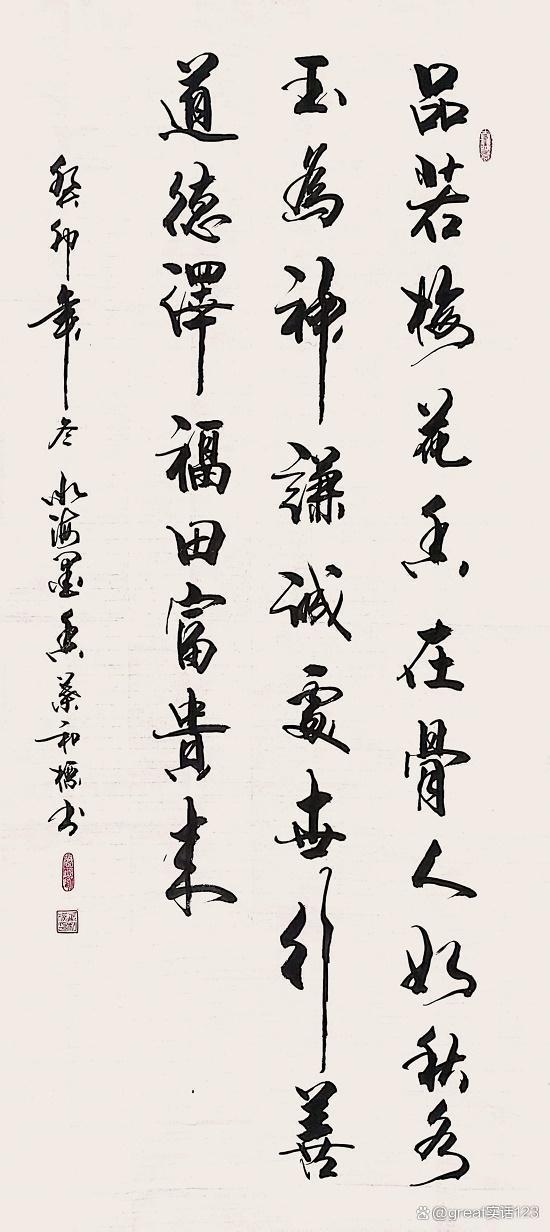 品若梅花香在骨人如秋水
玉為神謙誠處世行善
道德澤福田富貴来
癸卯年冬海墨香和標书
@great实话123